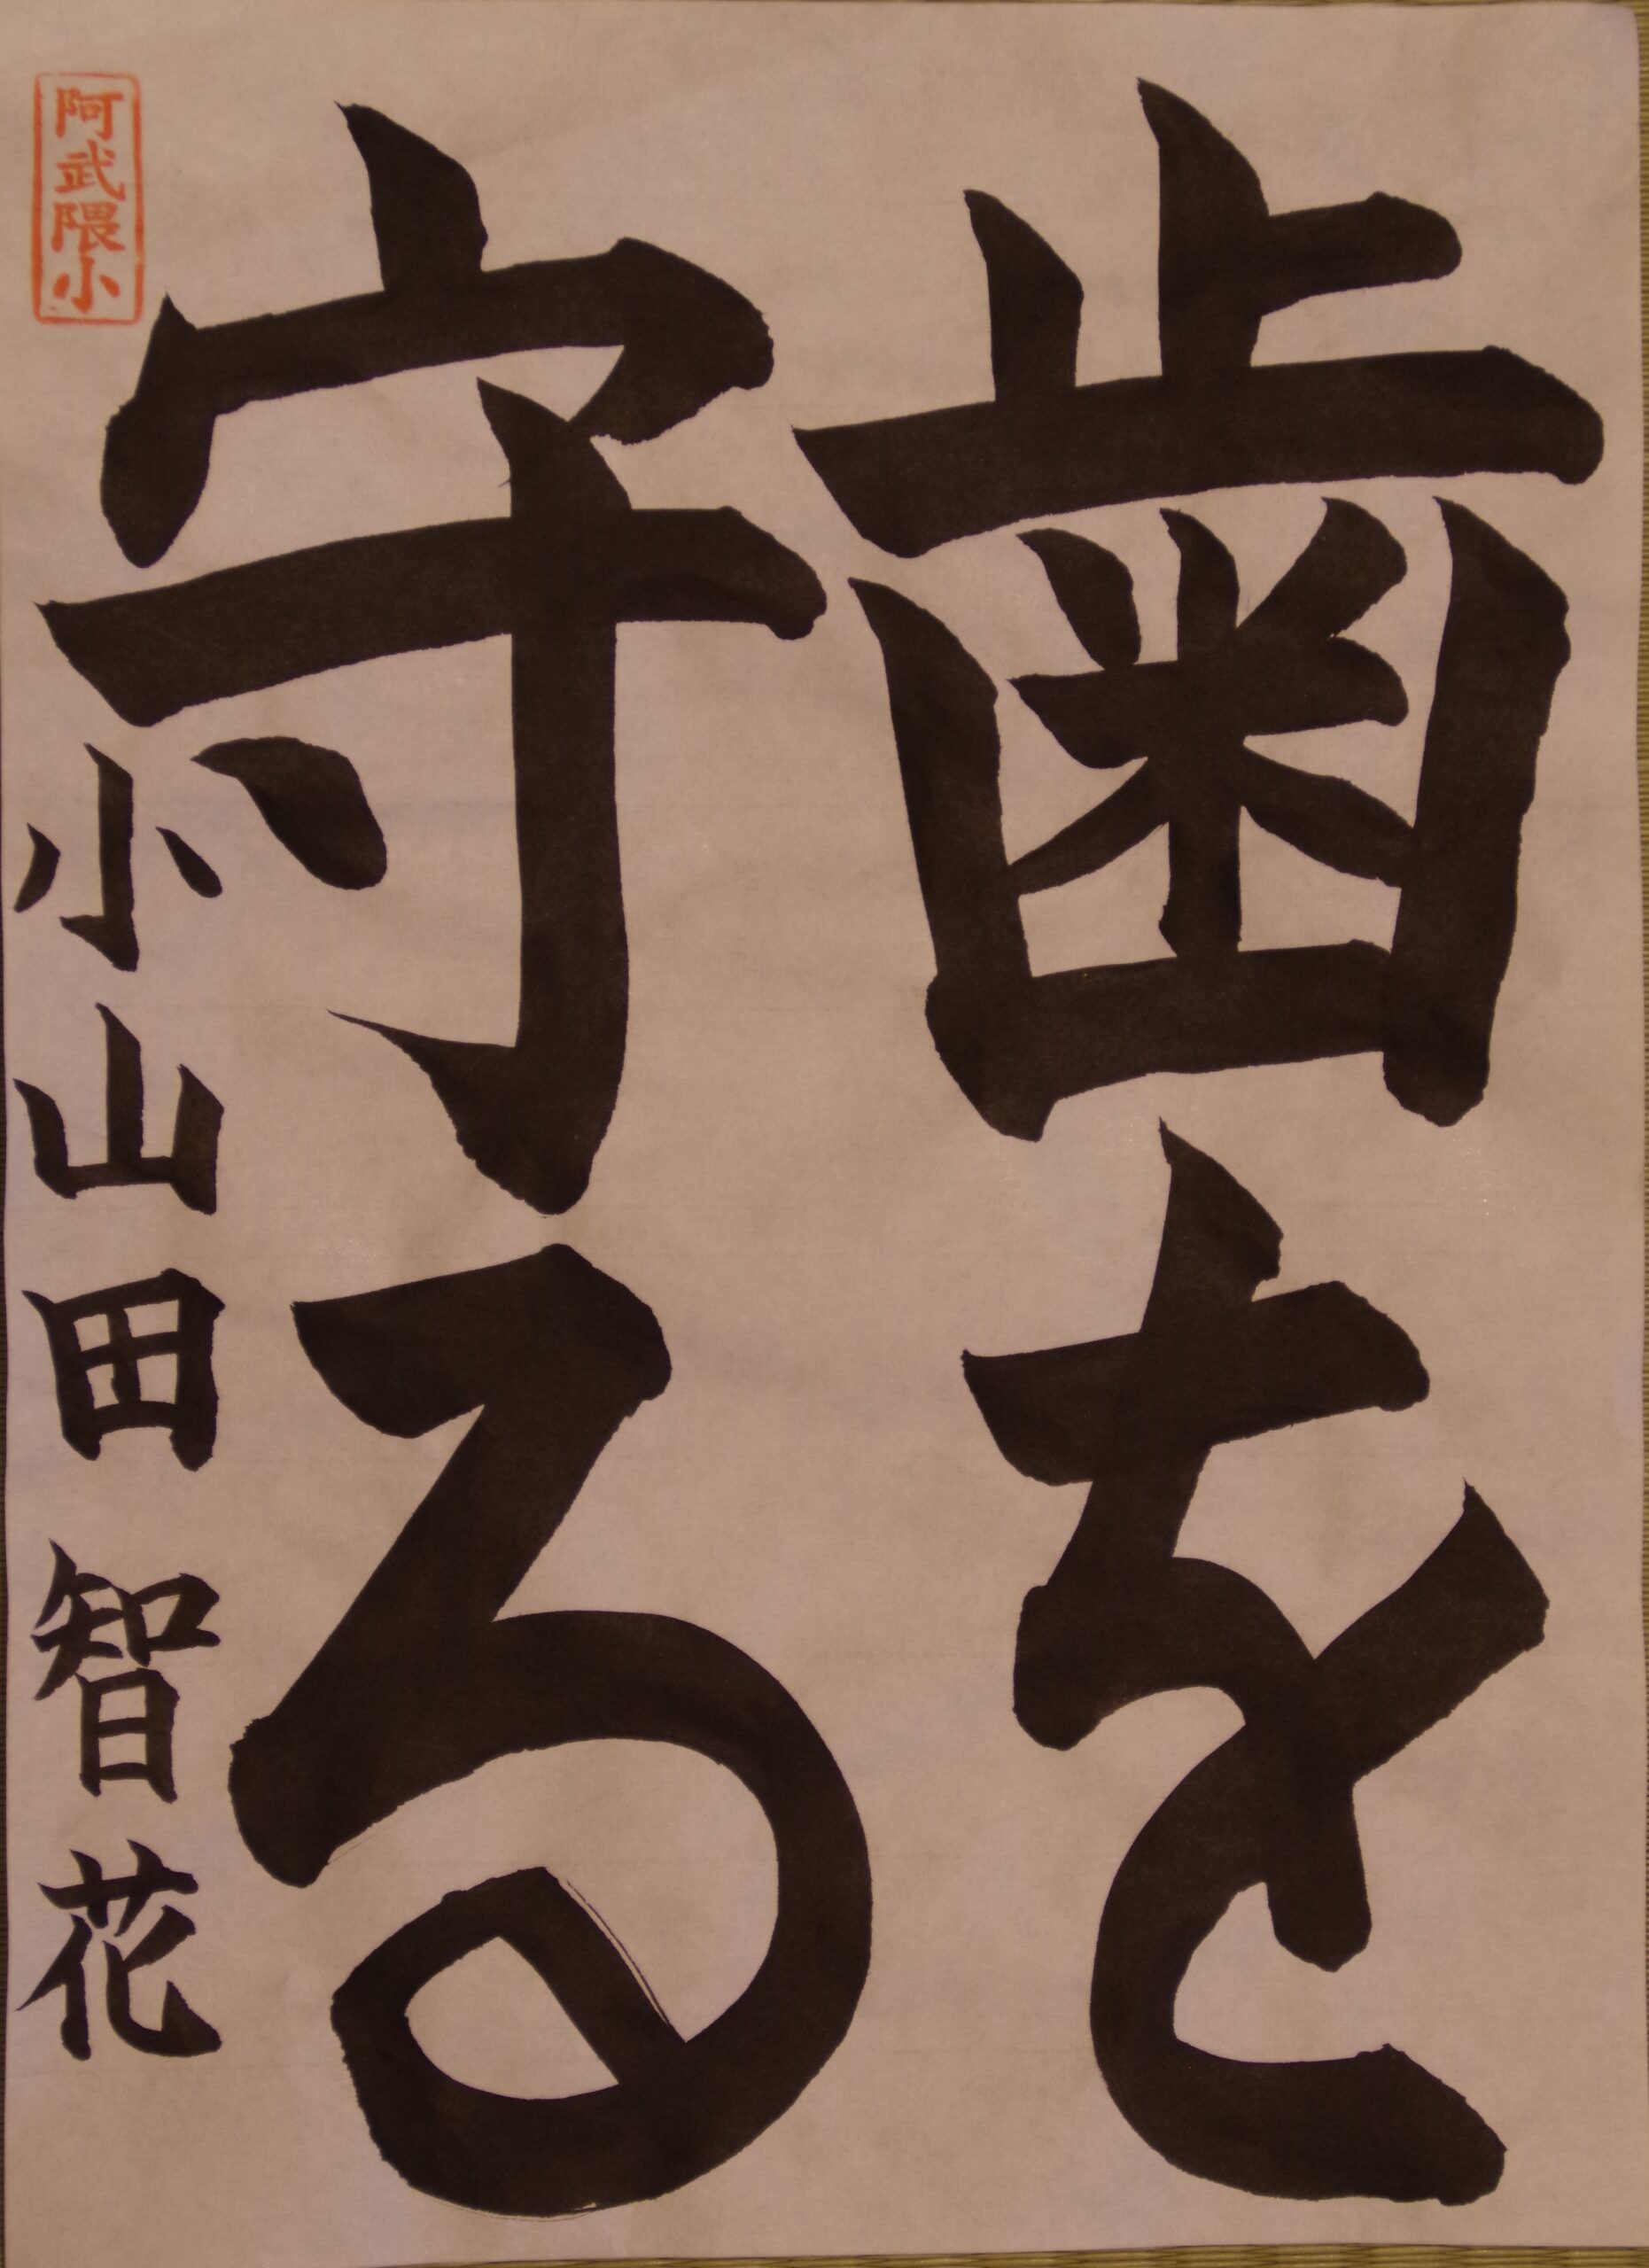 歯を
守る
阿武隈小
小山田智花